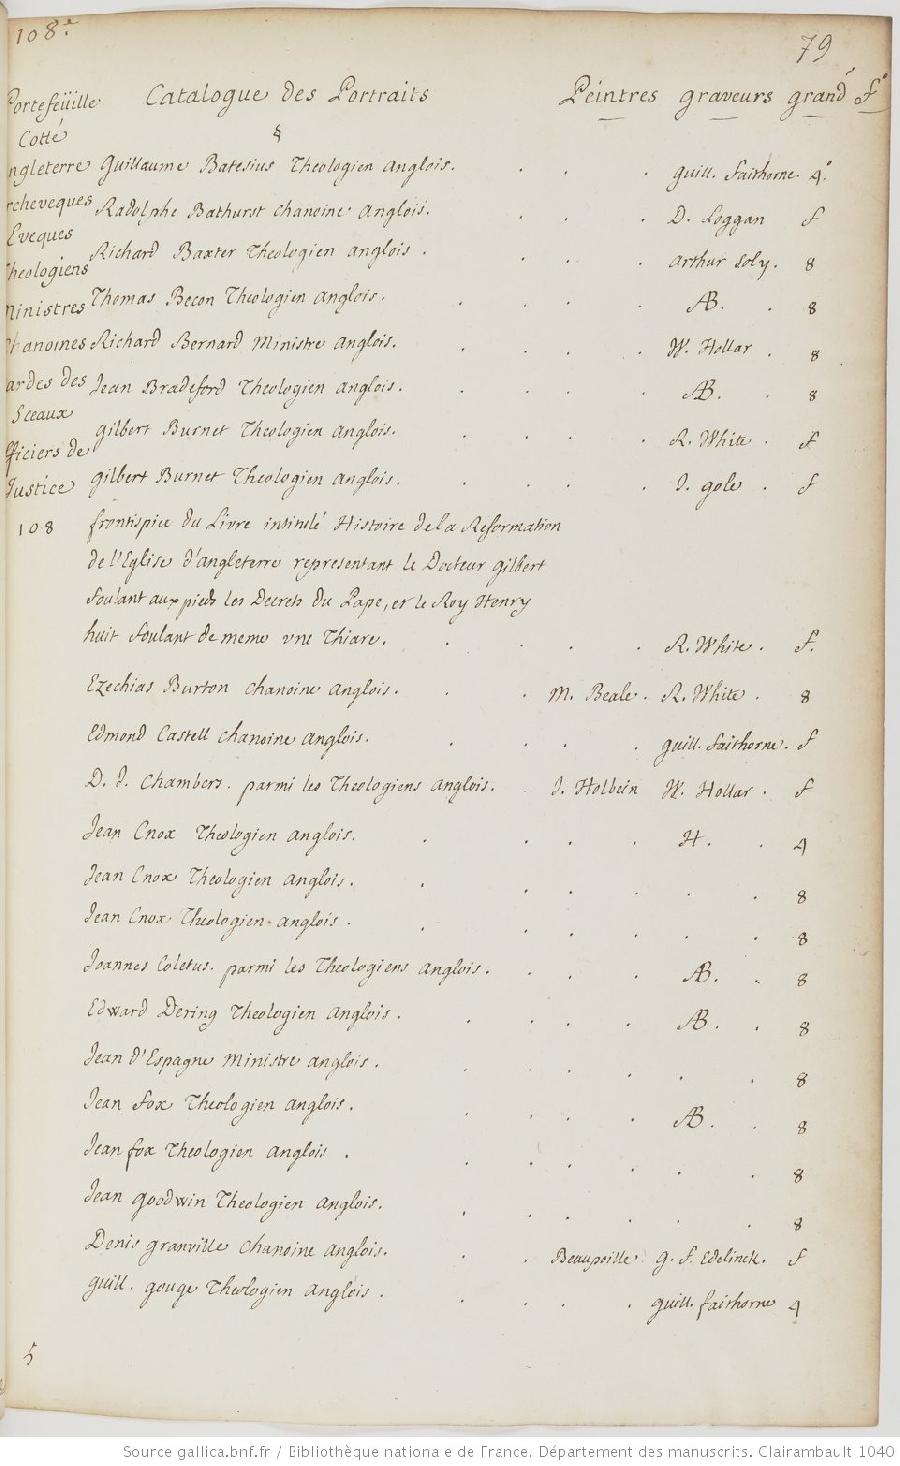 108.e
79
Portefëüille Catalogue des Portraits Peintres graveurs grand.r f.o
Cotté §
Angleterre Guillaume Batesius Theologien anglois. guill. faithorne. 4.o
Archeveques Radolphe Bathurst chanoine anglois. D. Loggan f
Eveques
Richard Baxter Theologien anglois. arthur soly. 8
Theologiens
Ministres Thomas Becon Theologien anglois. AB. 8
Chanoines Richard Bernard Ministre anglois. W. Hollar. 8
Gardes des Jean Bradeford Theologien anglois. AB. 8
Sceaux
gilbert Burnet Theologien anglois. R. White. f
officiers de
Justice gilbert Burnet Theologien anglois. J. gole. f
108 frontispice du Livre intitulé Histoire de la Reformation
de l'Eglise d'angleterre representant le Docteur gilbert
foulant aux pieds les Decrets du Pape, et le Roy Henry
huit foulant de meme une Thiare. R. White. f.
Ezechias Burton chanoine anglois. M. Beale. R. White. 8
Edmond Castell chanoine anglois. guill. faithorne. f
D. J. Chambers. parmi les Theologiens anglois. J. Holbein W. Hollar. f
Jean Cnox Theologien anglois. H. 4
Jean Cnox Theologien anglois. 8
Jean Cnox Theologien anglois. 8
Joannes Coletus. parmi les Theologiens anglois. AB. 8
Edward Dering Theologien anglois. AB. 8
Jean d'Espagne Ministre anglois. 8
Jean Fox Theologien anglois. AB. 8
Jean fox Theologien anglois. 8
Jean goodwin Theologien anglois. 8
Denis granville chanoine anglois. Beaupoille g. f. Edelinck. f
guill. gouge Theologien anglois. guill. faithorne 4
5
Source gallica.bnf.fr / Bibliothèque nationale de France. Département des manuscrits. Clairambault 1040